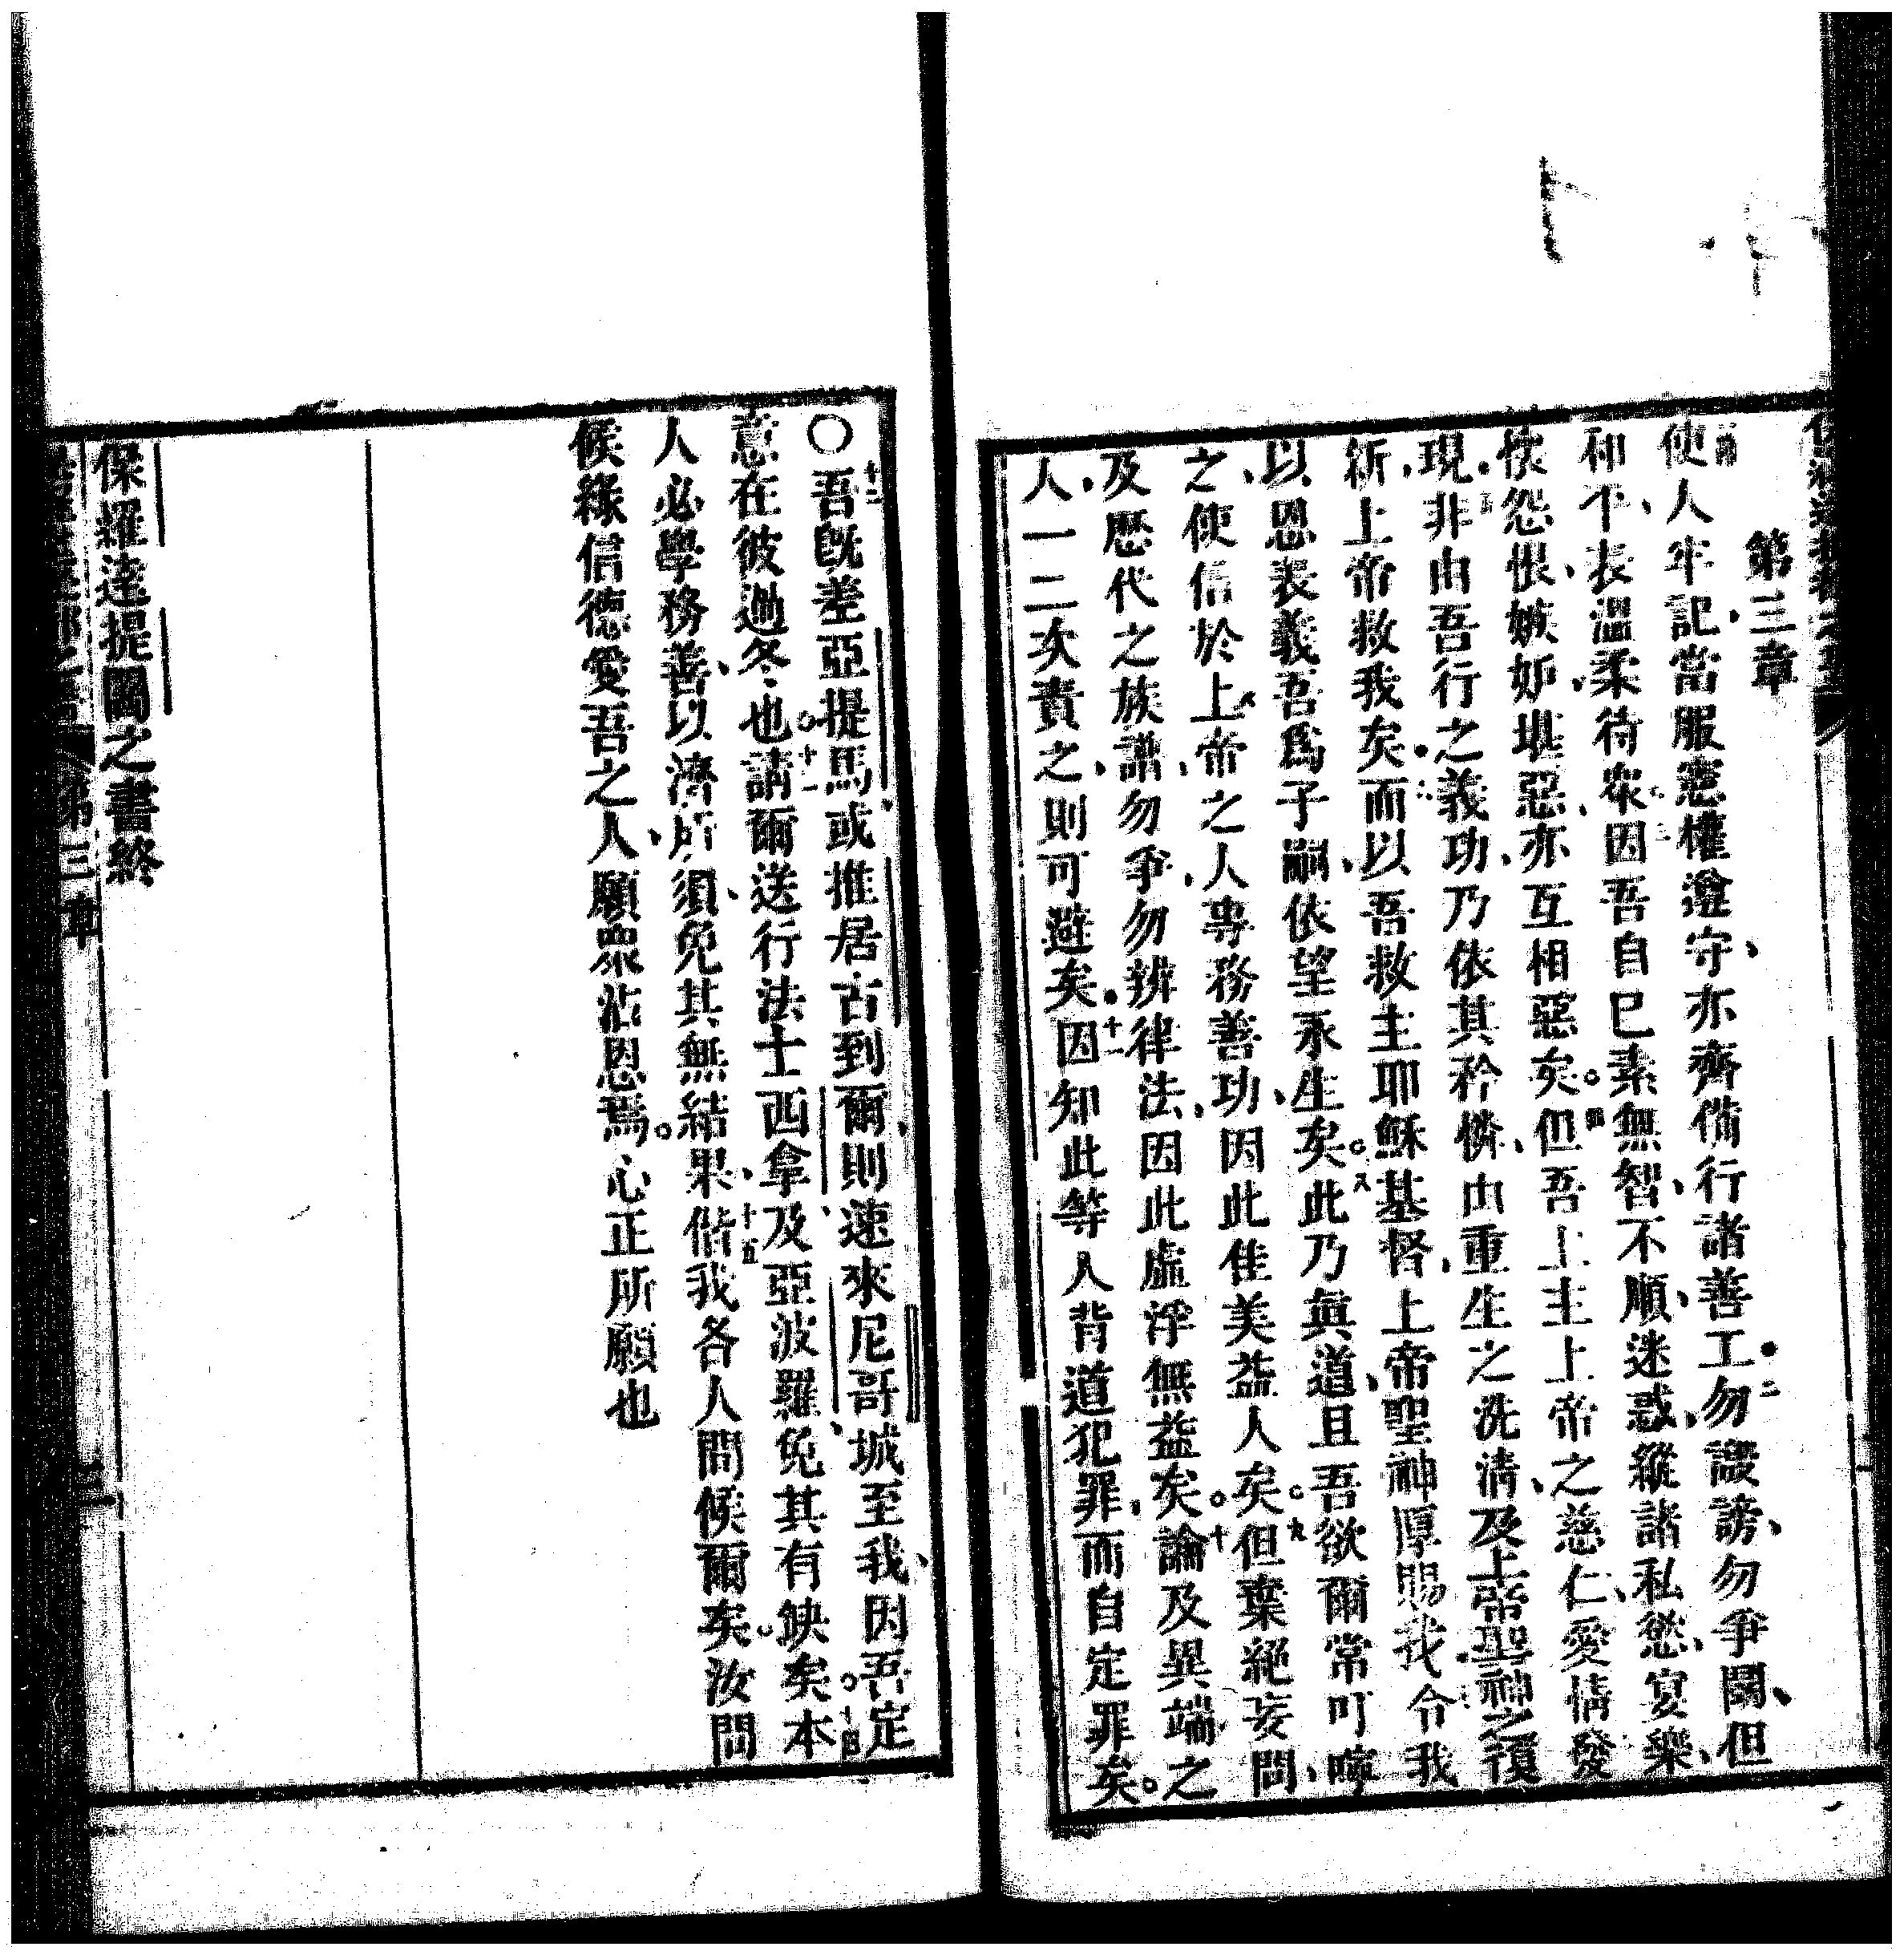 第三章
使人牢記當服憲權遵守亦齊備行諸善工勿謗勿爭鬬但
和平表溫柔待衆因吾自己素無智不順迷惑縱諸私慾宴樂
怏怨恨嫉妒堪惡亦互相惡矣但吾上主上帝之慈仁愛情發
現非由吾行之義功乃依其矜憐由重生之洗清及上帝聖神之復
新上帝救我矣而以吾救主耶穌基督上帝聖神厚賜我令我
以恩表義吾爲子嗣依望永生矣此乃眞道且吾欲爾常叮嚀
之使信於上帝之人專務善功因此佳美益人矣但棄絕妄問
及歷代之族譜勿爭勿辨律法因此虛浮無益矣論及異端之
人一二次責之則可避矣因知此等人背道犯罪而自定罪矣
〇吾旣差亞提馬或推居古到爾則速來尼哥城至我因吾定
意在彼過冬也請爾送行法士西拿及亞波羅免其有缺矣本
人必學務善以濟所須免其無結果偕我各人問候爾矣汝問
候緣信德愛吾之人願眾沾恩焉心正所願也
保羅達提圖之書終
第三章